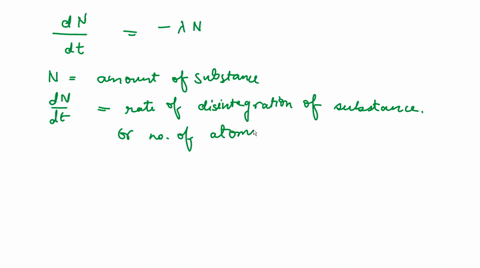 dN/dt = -λN
N = amount of substance
dN/dt = rate of disintegration of substance.
or no. of atom